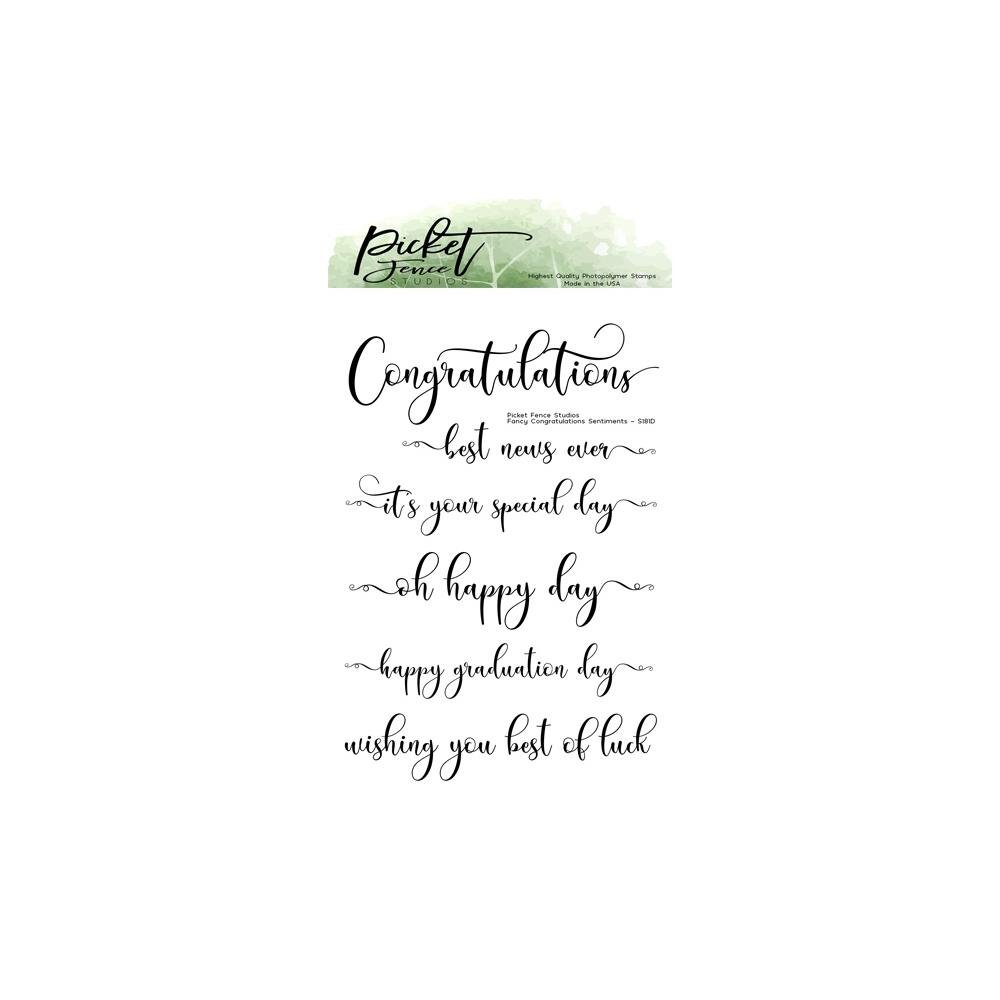 Picket
Fence
STUDIOS
Highest Quality Photopolymer Stamps
Made in the USA
Congratulations
Picket Fence Studios
Fancy Congratulations Sentiments - S181D
best news ever
it's your special day
oh happy day
happy graduation day
wishing you best of luck